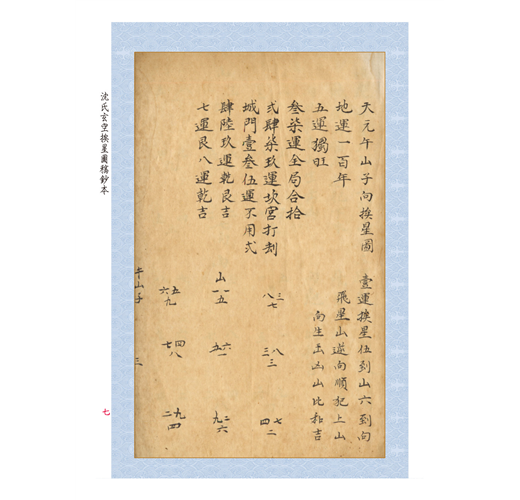 天元午山子向挨星圖
地運一百年
五運獨旺
叁柒運全局合拾
弍肆柒玖運坎宮打刦
城門壹叁伍運不用弍
肆陸玖運乾艮吉
七運艮八運乾吉
壹運挨星伍到山六到向
飛星山逆向順犯上山
向生出凶山比和吉
八三
七
三八
三
四七
二
山
一一
五
五六
一
九二
六
六五
九
七四
八
二九
四
午山子
三
沈氏玄空挨星圖稿鈔本
七